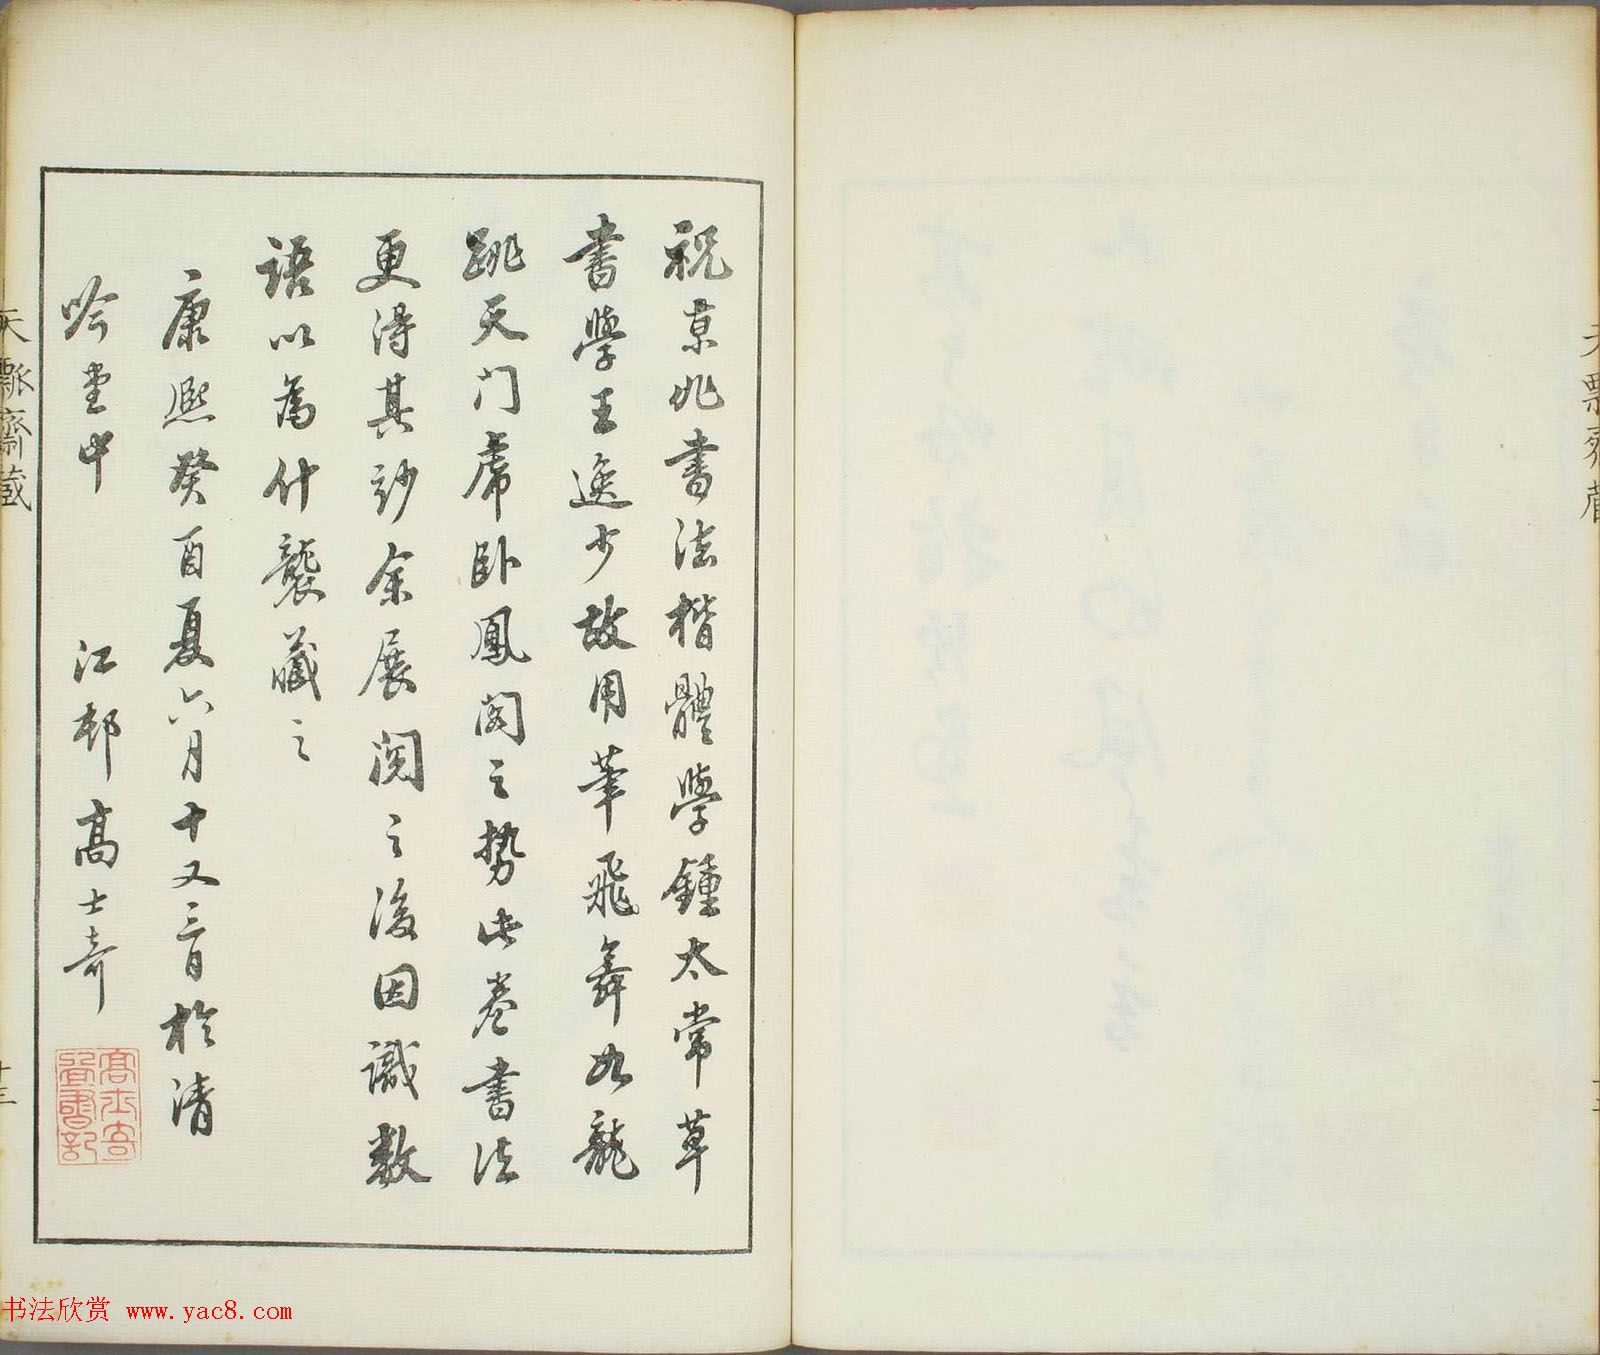 祝京兆書法楷體學鍾太常草
書學王逸少故用筆飛舞如龍
跳天门虎卧鳳閣之勢此卷書法
更得其妙余展閱之後因識數
語以為什襲藏之
康熙癸酉夏六月十又三日於清
吟堂中 江邨高士奇
高士奇
書記
天瓢齋藏
十三
天瓢齋藏
书法欣赏 www.yac8.com